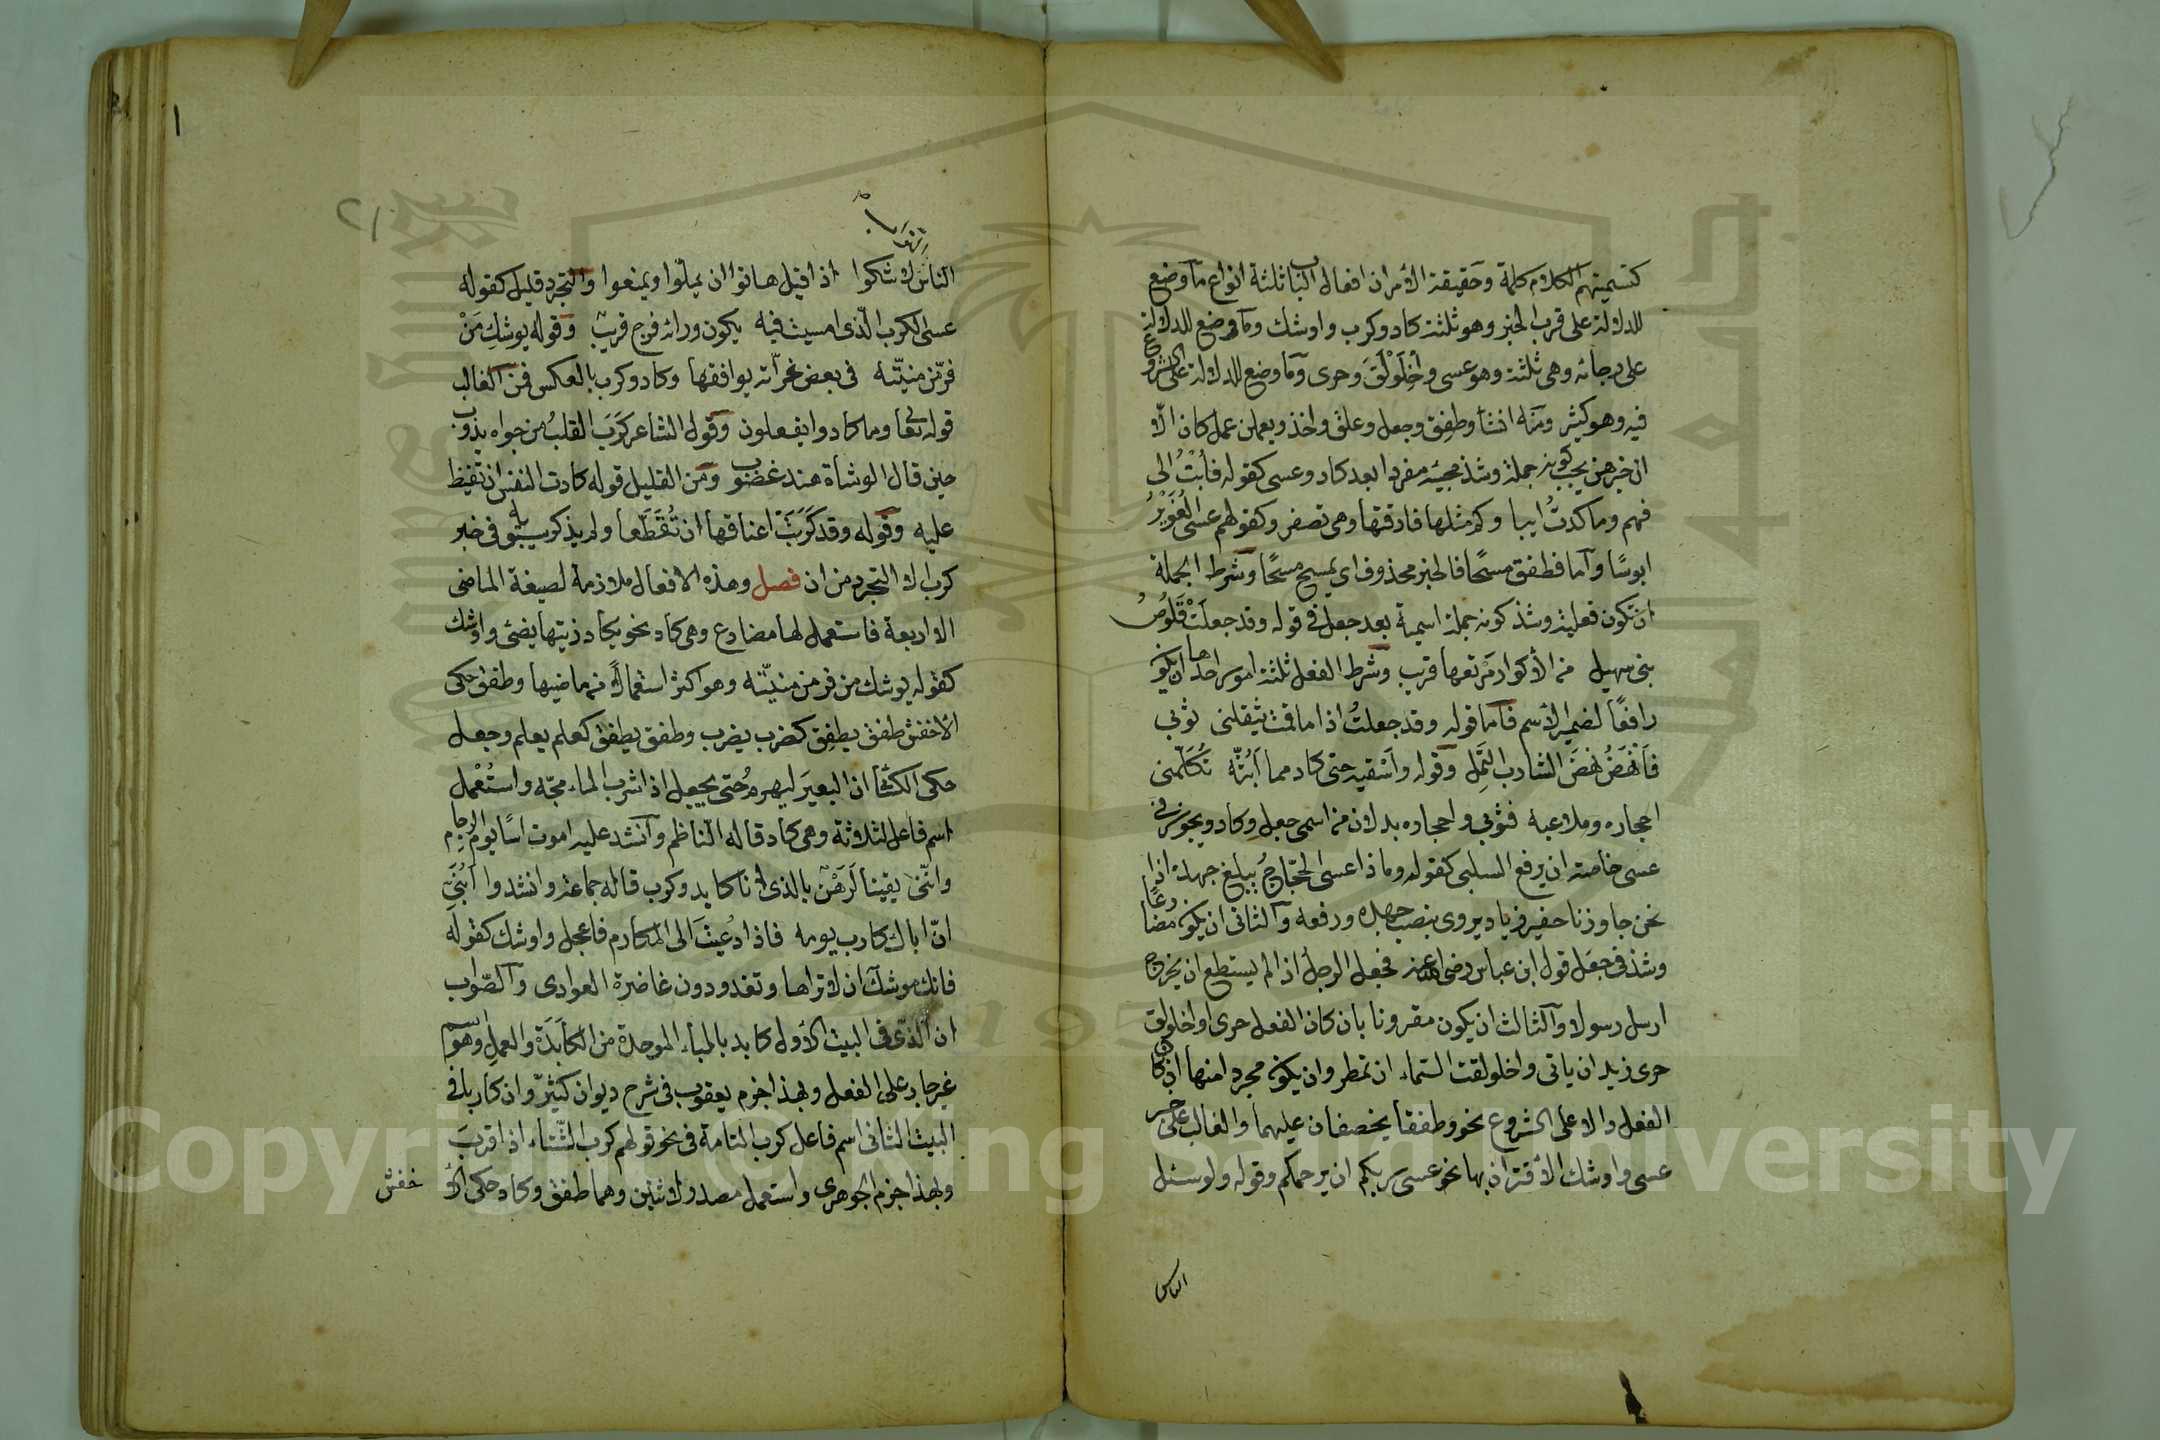 كتسميتهم الكلام كلمة وحقيقة الأمر ان افعال الباب ثلثة انواع ما وضع
للدلالة على قرب الخبز وهو ثلثة كاد وكرب واوشك وما وضع للدلالة
على رجائه وهى ثلثة وهو عسى واخلولق وحرى وما وضع للدلالة على الشروع
فيه وهو كثير ومنه انشأ وطفق وجعل وعلق واخذ ويعملن عمل كان الّا
ان خبرهن يجب كونه جملة وشذ مجيئه مفردا بعد كاد وعسى كقوله فأبتُ الى
فهم وما كدتُ ايبا وكم مثلها فارقتها وهى تصفر وكقولهم عسى الغُوَيْرُ
ابوسًا وآما فطفق مسحًا فالخبر محذوف اي يمسح مسحًا وشرط الجملة
ان تكون فعلية وشذ كونه جملة اسمية بعد جعل في قوله وقد جعلَتْ قَلُوصُ
بنى سهيل من الأكوار مَرْتعها قريب وشرط الفعل ثلثة امور احدها ان يكون
رافعًا لضمير الأسم فآما قوله وقد جعلتُ اذا ما قمت يثقلنى ثوبي
فأنْهَضُ نهضَ الشارب الثَّمِل وقوله وأسْقيه حتى كاد مما أبُثّه تُكَلّمنى
احجاره وملاعبه فثوبي واحجاره بدلان من اسمى جعل وكاد ويجوز في
عسى خاصة ان يرفع السلبى كقوله وماذا عسى الحَجّاجُ يبلغ جهده اذا
نحن جاوزنا حفير زياد يروى بنصب جهده ورفعه والثانى ان يكون مضارعًا
وشذ في جعل قول ابن عباس رضى الله عنه فجعل الرجل اذا لم يستطع ان يخرج
ارسل رسولا والثالث ان يكون مقرونا بان كان الفعل حرى او اخلولق نحو
حرى زيد ان ياتى واخلولقت السماء ان تمطر وان يكون مجردا منها ان كان
الفعل دالا على الشروع نحو وطفقا يخصفان عليهما والغالب في خبر
عسى واوشك الأقتران بها نحو عسى ربكم ان يرحمكم وقوله ولو سئل
الناس
الناس لاوشكوا اذا قيل هاتوا ان يملّوا ويمنعوا والتجرد قليل كقوله
عسى الكرب الّذى امسيت فيه يكون وراءه فرج قريبٌ وقوله يوشك مَنْ
فرّ من منيّته فى بعض غرّاته يوافقها وكاد وكرب بالعكس فمن الغالب
قوله تعا وما كادوا يفعلون وقول الشاعر كَرَبَ القلبُ من جواه يذوب
حين قال الوشاة هند غضوب ومن القليل قوله كادت النفس ان تفيظ
عليه وقوله وقد كَرَبَتْ اعناقها ان تُقَطَّعا ولم يذكر سيبويه في خبر
كرب الا التجرد من ان فصل وهذه الافعال ملازمة لصيغة الماضى
الا اربعة فاستعمل لها مضارع وهى كاد نحو يكاد زيتها يضئ واوشك
كقوله يوشك من فر من منيّته وهو اكثر استعمالًا من ماضيها وطفق حكى
الاخفش طفق يطفِق كضرب يضرب وطفق يطفق كعلم يعلم وجعل
حكى الكسّائي ان البعيرَ ليهرم حتى يجعل اذا شرب الماء مجّه واستُعْمل
اسم فاعل لثلاثة وهى كاد قاله الناظم وآنشد عليه اموت اسًا يوم الرجام
وانّنى يقينا لَرَهْنٌ بالذى انا كايد وكرب قاله جماعة وانشدوا أبُنَيَّ
انّ اباك كارب يومه فاذا دُعيتَ الى المكارم فاعجل واوشك كقوله
فانك موشك ان لا تراها وتغدو دون غاضرة العوادى والصّواب
ان الّذى في البيت الأول كابد بالباء الموحدة من المكابَدَة والعمل وهو اسم
غير جار على الفعل وبهذا جزم يعقوب فى شرح ديوان كثيّر وان كاربا في
البيت الثانى اسم فاعل كرب التامة فى نحو قولهم كرب الشّتاء اذا قربَ
وبهذا جزم الجوهرى واستعمل مصدر لاثنين وهما طفق وكاد حكى الأخفش